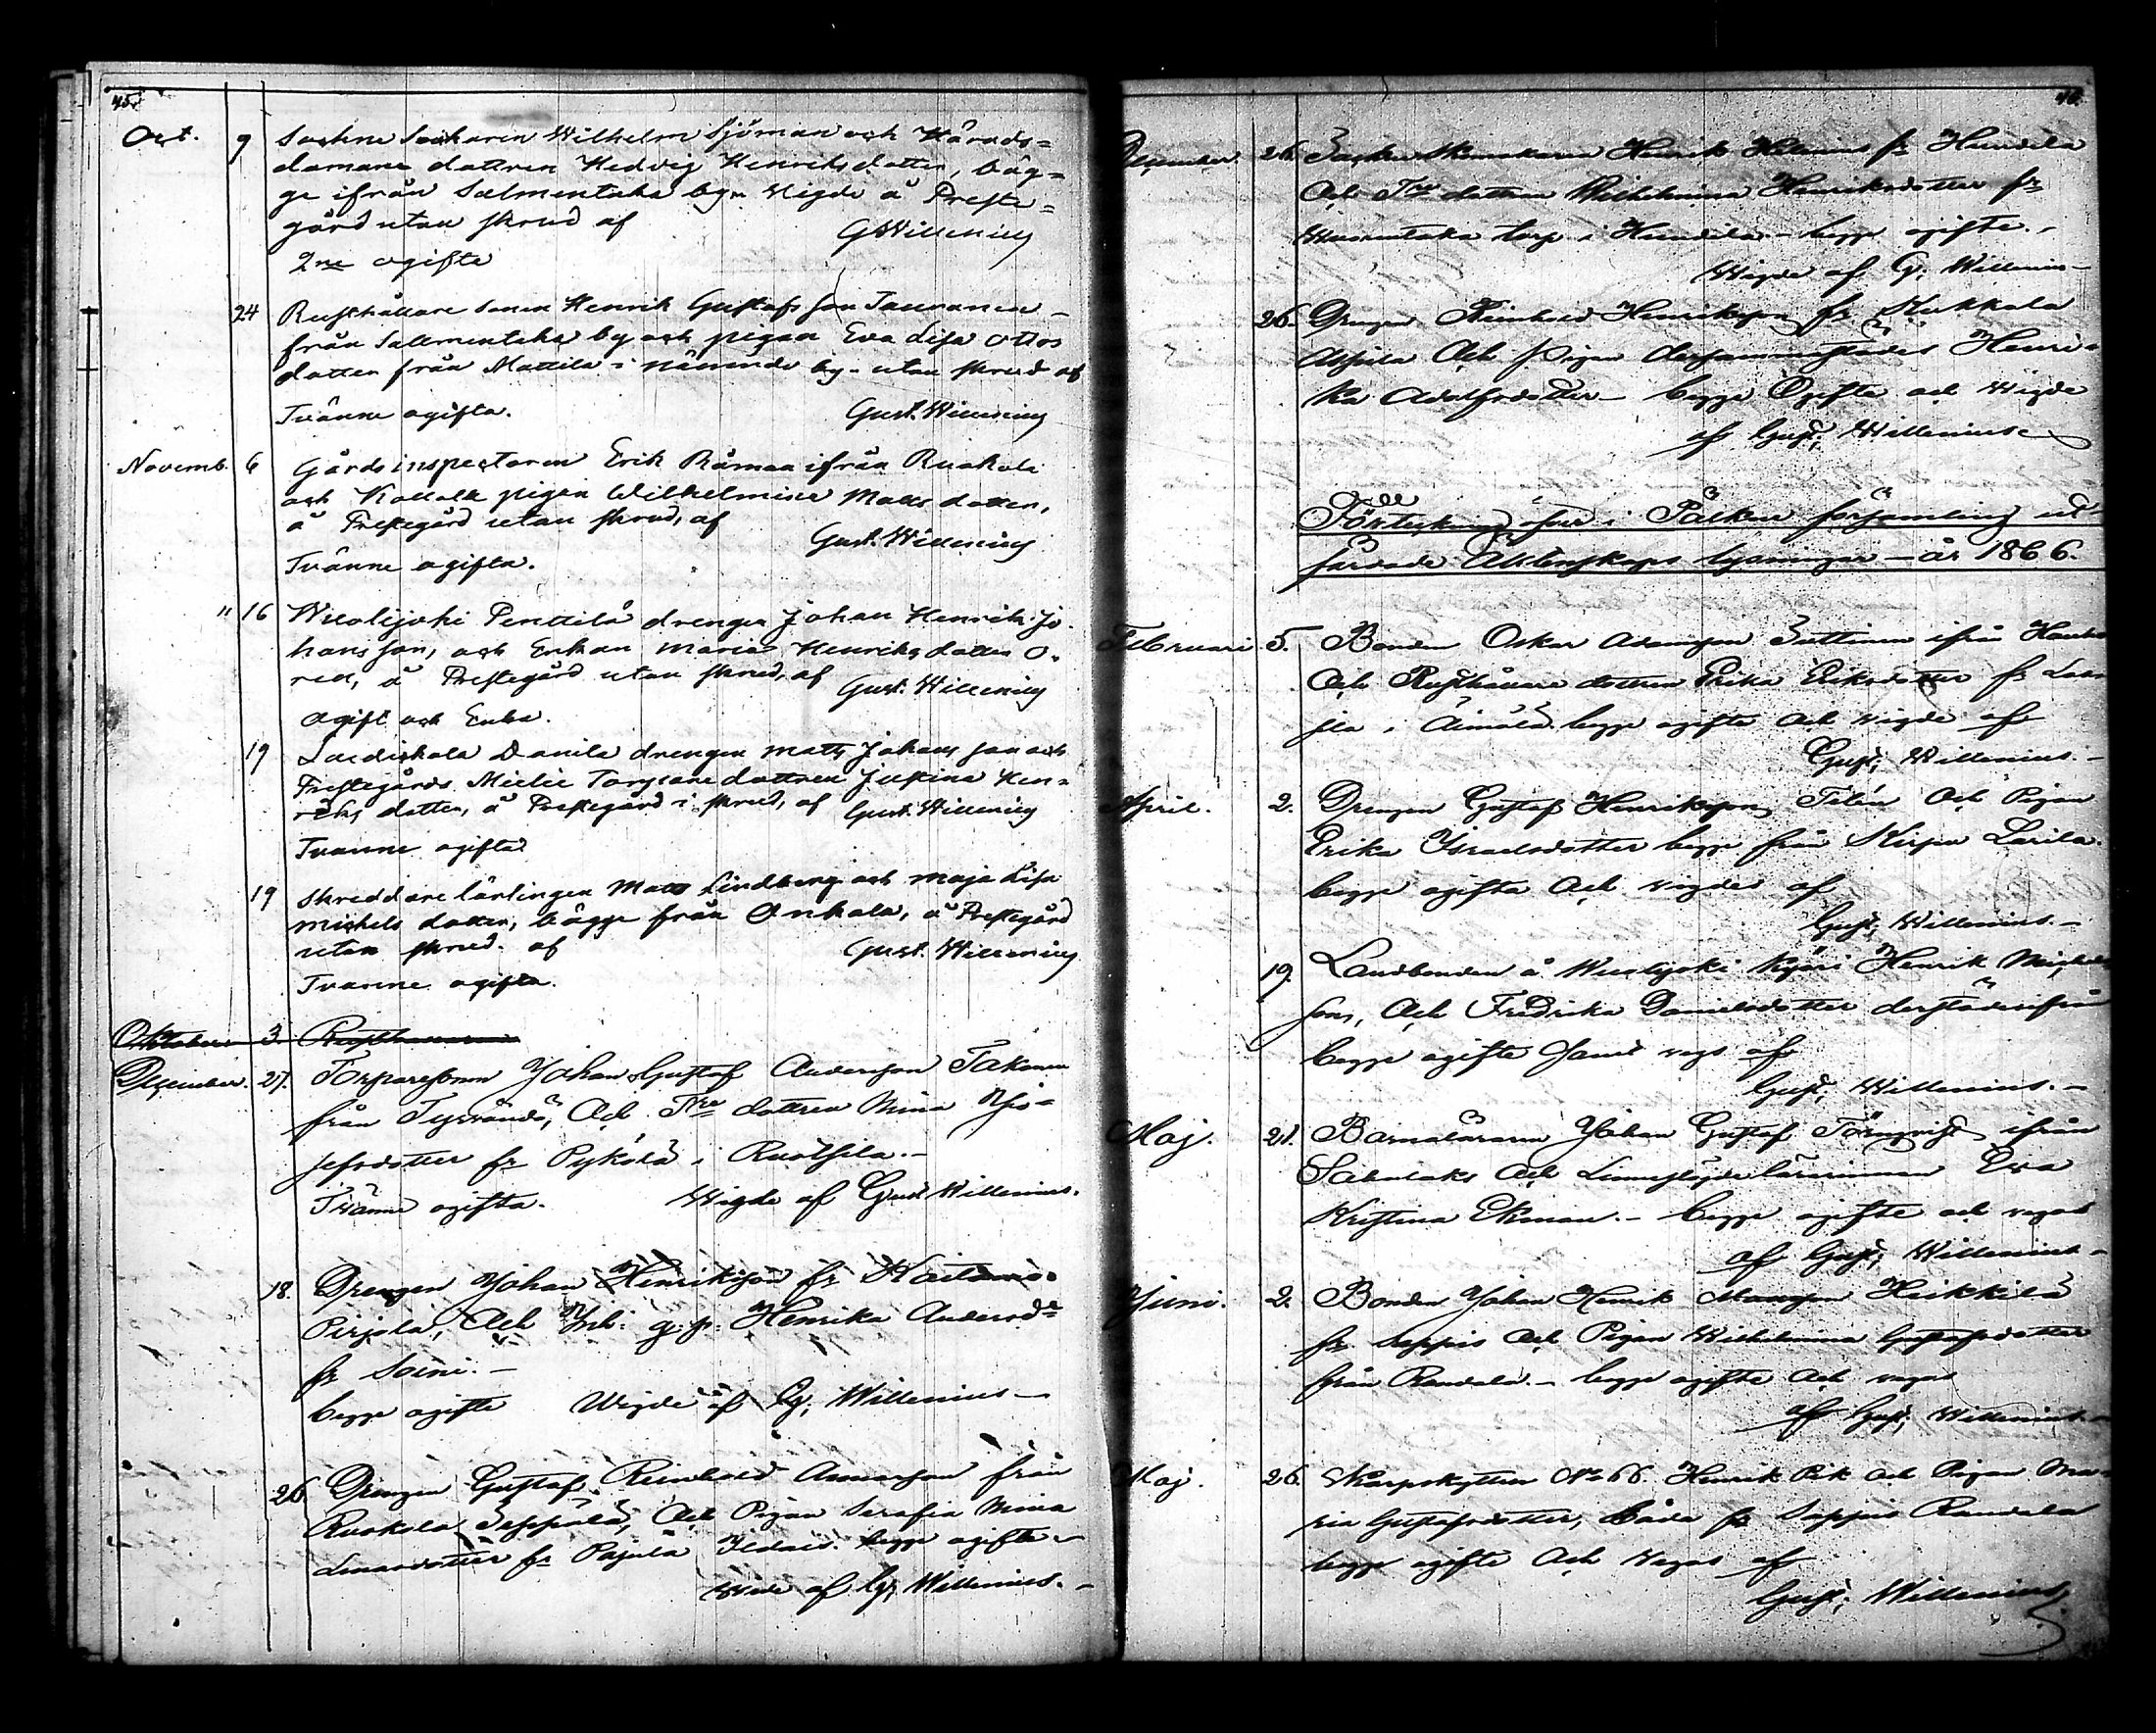 45.
Oct. 9 Sochne Wilhelm Sjöman och Härads=
domare dottren Hedvig Henriksdotter, bäg=
ge ifrån Salmentaka by. Vigde å Preste=
gård utan skrud af G Willenius
2ne ogifte
24 Rusthållare sonen Henrik Gustafsson Tauranen
från Salmentaka by och pigan Eva Lisa Ottos
dotter från Mattila i nämnde by - utan skrud af
Tvänne ogifta. Gust. Willenius
Novemb. 6 Gårdsinspectoren Erik Råman ifrån Ruokola
och Kallola pigan Wilhelmina Mattsdotter,
å Prestegård utan skrud, af Gust. Willenius
Tvänne ogifta.
" 16 Wuolijoki Penttilä drengen Johan Henrik Jo-
hansson, och Enkan Maria Henriksdotter
å Prestegård utan skrud, af Gust. Willenius
Ogift och Enka.
19 Danila drengen Matts Johansson och
Prestegårds Torpare dottren Justina Hen=
riksdotter, å Prestegård i skrud, af Gust. Willenius
Tvänne ogifta
19 Skreddare lärlingen Matts Lindberg och Maja Lisa
Michelsdotter, bägge från Onkala, å Prestegård
utan skrud. af Gust. Willenius
Tvänne ogifta.
Oktober 3. Rusthållaren
December. 27. Torparesonen Johan Gustaf Andersson Takanen
från Tyrvändö, Och T̲r̲e̲ dottren Mina Jo-
sefsdotter fr Pykölä i Ruotsila.-
Tvänne ogifta. Wigde af Gust Willenius.
18. Drengen Johan Henriksson fr
Pirjola, Och Inh. g. p. Henrika Andersdr
fr Soini.-
begge ogifte Wigde af G; Willenius-
26 Drengen Gustaf Reinhold från
Ruokola Seppälä, Och Pigan Serafia Mina
fr Pajula begge ogifte-
Wiede af G; Willenius.-
46.
December 26. Henrik fr Hundila
Och Tre dottren Wilhelmina Henriksdotter fr
torp i Hundila - begge ogifte.-
Wigde af G. Willenius-
26. Drengen Reinhold Henriksson fr Kukkola
Och Pigan dersammastädes Henri-
ka Adolfsdotter - begge Ogifte och Wigde
af Gust; Willenius
Förteckning öfver i Pälkene församling ut-
färdade Äktenskaps lysningar - år 1866.
Februari 5. Bonden Oskar Adamsson ifrån
Och Rusthållare dottren Erika Eriksdotter fr
i Äimälä. begge ogifte och vigde af
Gust; Willenius.-
April. 2. Drengen Gustaf Henriksson Och Pigan
Erika Israelsdotter begge från Kirpu Larila.
begge ogifta Och vigdes af
Gust; Willenius.-
19. Landbonden å Wuolijoki Kyöri Henrik Michels
son, Och Fredrika Danielsdotter derstädesifrån
begge ogifte Samt vigs af
Gust; Willenius.-
Maj. 21. Barnaläraren Johan Gustaf Törnqvist ifrån
Och lärarinnan Eva
Kristina Ekman.- begge ogifte och vigas
af Gust; Willenius-
Juni. 2. Bonden Johan Henrik Heikkilä
fr Sappis Och Pigan Wilhelmina Gustafsdotter
från Randala.- begge ogifte Och vigas
af Gust; Willenius.-
Maj. 26. Skarpskytten No 66. Henrik Rik och Pigan Ma-
ria Gustafsdotter, båda fr Sappis Randala
begge ogifte Och vigas af
Gust; Willenius